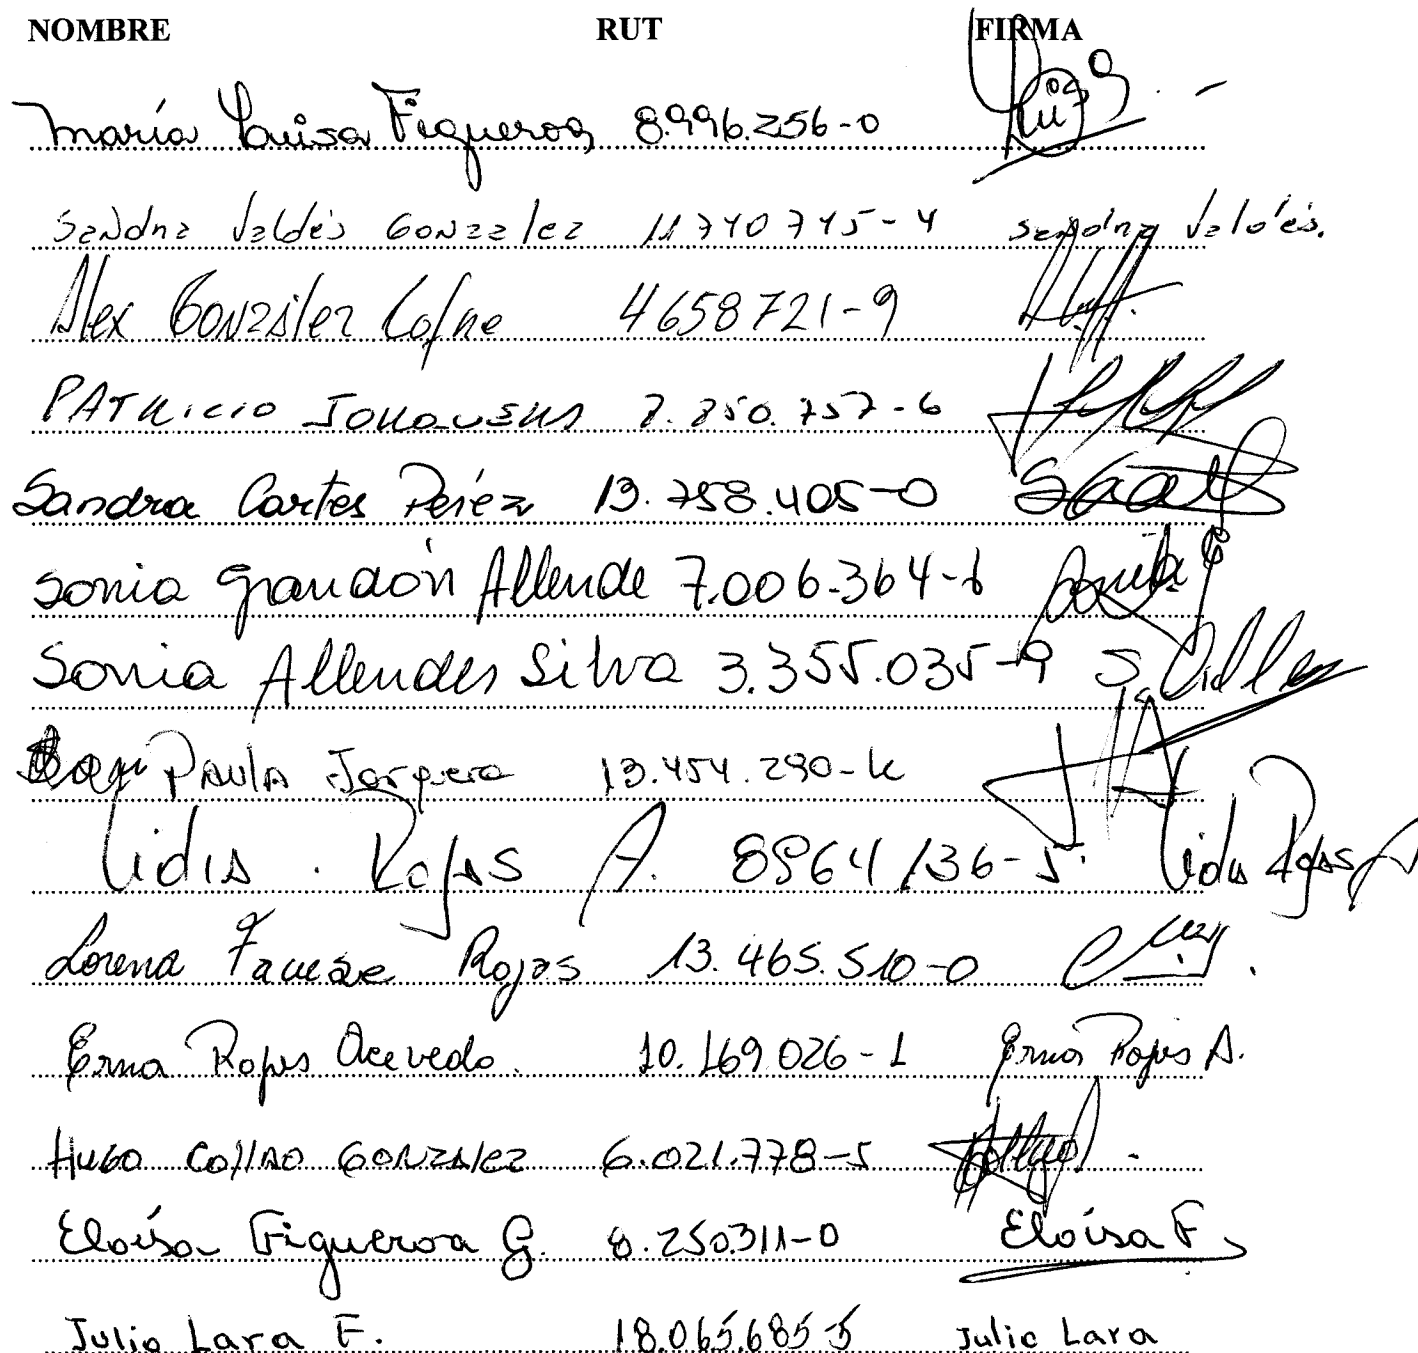 NOMBRE RUT FIRMA
María Luisa Figueroa 8.996.256-0 Luisa
Sandra Valdés Gonzalez 11740745-4 Sandra Valdés.
Alex González 4658721-9
PATRICIO 7.850.757-6
Sandra Cartes Peréz 13.758.405-0
Sonia Grandón Allende 7.006.364-6 Sonia
Sonia Allendes Silva 3.355.035-9 S.
PAULA Jorquera 13.454.290-k
Lidia Rojas A. 8964136-5 Lidia Rojas A
Lorena Rojas 13.465.510-0
Erna Rojas Acevedo. 10.169026-1 Erna Rojas A.
HUGO COLLAO GONZALEZ 6.021.778-5
Eloísa Figueroa G. 8.250311-0 Eloísa F.
Julio Lara F. 18.065.685-5 Julio Lara